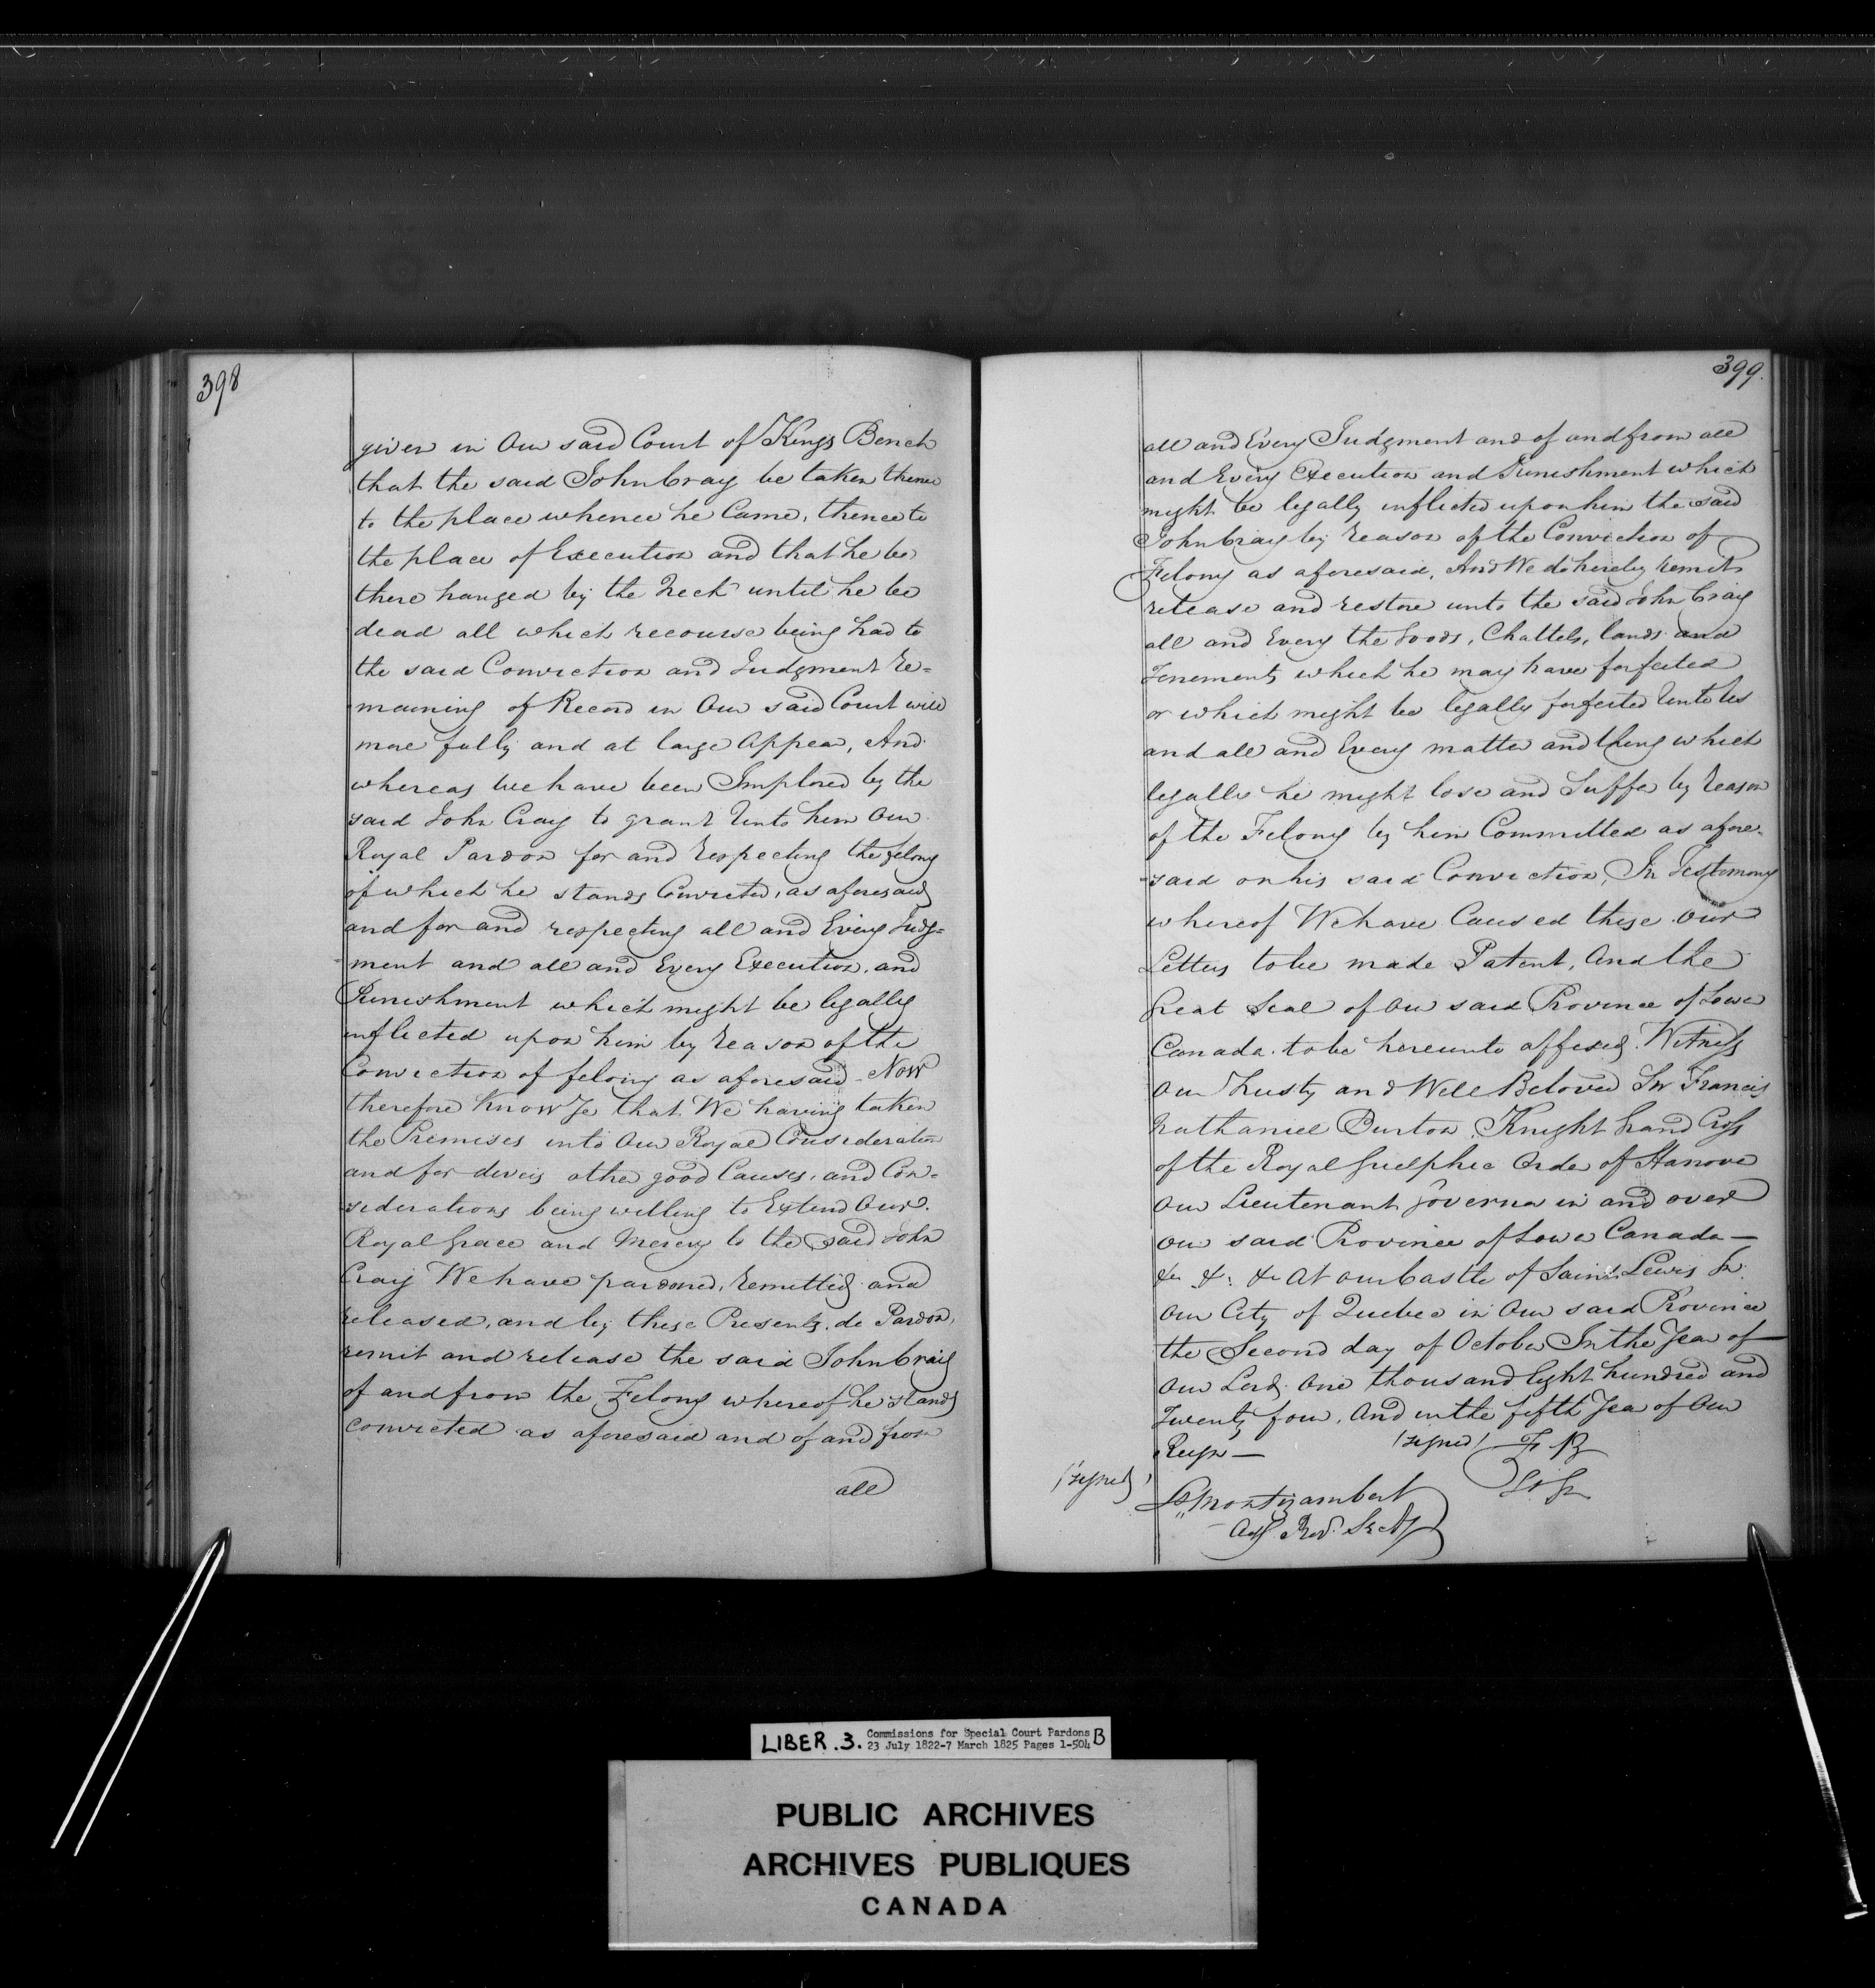 398
given in Our said Court of Kings Bench
that the said John Craig be taken thence
to the place whence he Came, thence to
the place of Execution and that he be
there hanged by the Neck until he be
dead all which recourse being had to
the said Conviction and Judgment Re=
maining of Record in Our said Court will
more fully and at large Appear, And
whereas We have been Implored by the
said John Craig to grant Unto him Our
Royal Pardon for and Respecting the felony
of which he stands Convicted, as aforesaid
and for and respecting all and Every Judg=
ment and all and Every Execution, and
Punishment which might be legally
inflicted upon him by Reason of the
Conviction of felony as aforesaid - Now
therefore Know Ye that We having taken
the Premises into Our Royal Consideration
and for divers other good Causes, and Con=
siderations being willing to Extend Our
Royal Grace and Mercy to the said John
Craig We have pardoned, Remitted and
released, and by these Presents, do Pardon,
remit and release the said John Craig
of and from the Felony whereof he stands
convicted as aforesaid and of and from
all
399.
all and Every Judgment and of and from all
and Every Execution and Punishment which
might be legally inflicted upon him the said
John Craig by Reason of the Conviction of
Felony as aforesaid, And We do hereby Remit
release and restore unto the said John Craig
all and Every the Goods, Chattels, lands and
Tenements which he may have forfeited
or which might be legally forfeited Unto Us
and all and Every matter and thing which
legally he might lose and Suffer by Reason
of the Felony by him Committed as afore-
said or his said Conviction, In Testimony
whereof We have Caused these Our
Letters to be made Patent, And the
Great Seal of Our said Province of Lower
Canada to be hereunto affixed. Witness
Our Trusty and Well Beloved Sir Francis
Nathaniel Burton, Knight Grand Cross
of the Royal Guelphic Order of Hanover
Our Lieutenant Governor in and over
our said Province of Lower Canada —
&c &c &c At our Castle of Saint Lewis In
Our City of Quebec in Our said Province
the Second day of October In the Year of
Our Lord One thousand Eight hundred and
Twenty four, And in the fifth Year of Our
Reign —
(signed) F B
Lt Gr
(signed)
Ls Montizambert
Actg Prov. Secty
LIBER .3. Commissions for Special Court Pardons B
23 July 1822-7 March 1825 Pages 1-504
PUBLIC ARCHIVES
ARCHIVES PUBLIQUES
CANADA